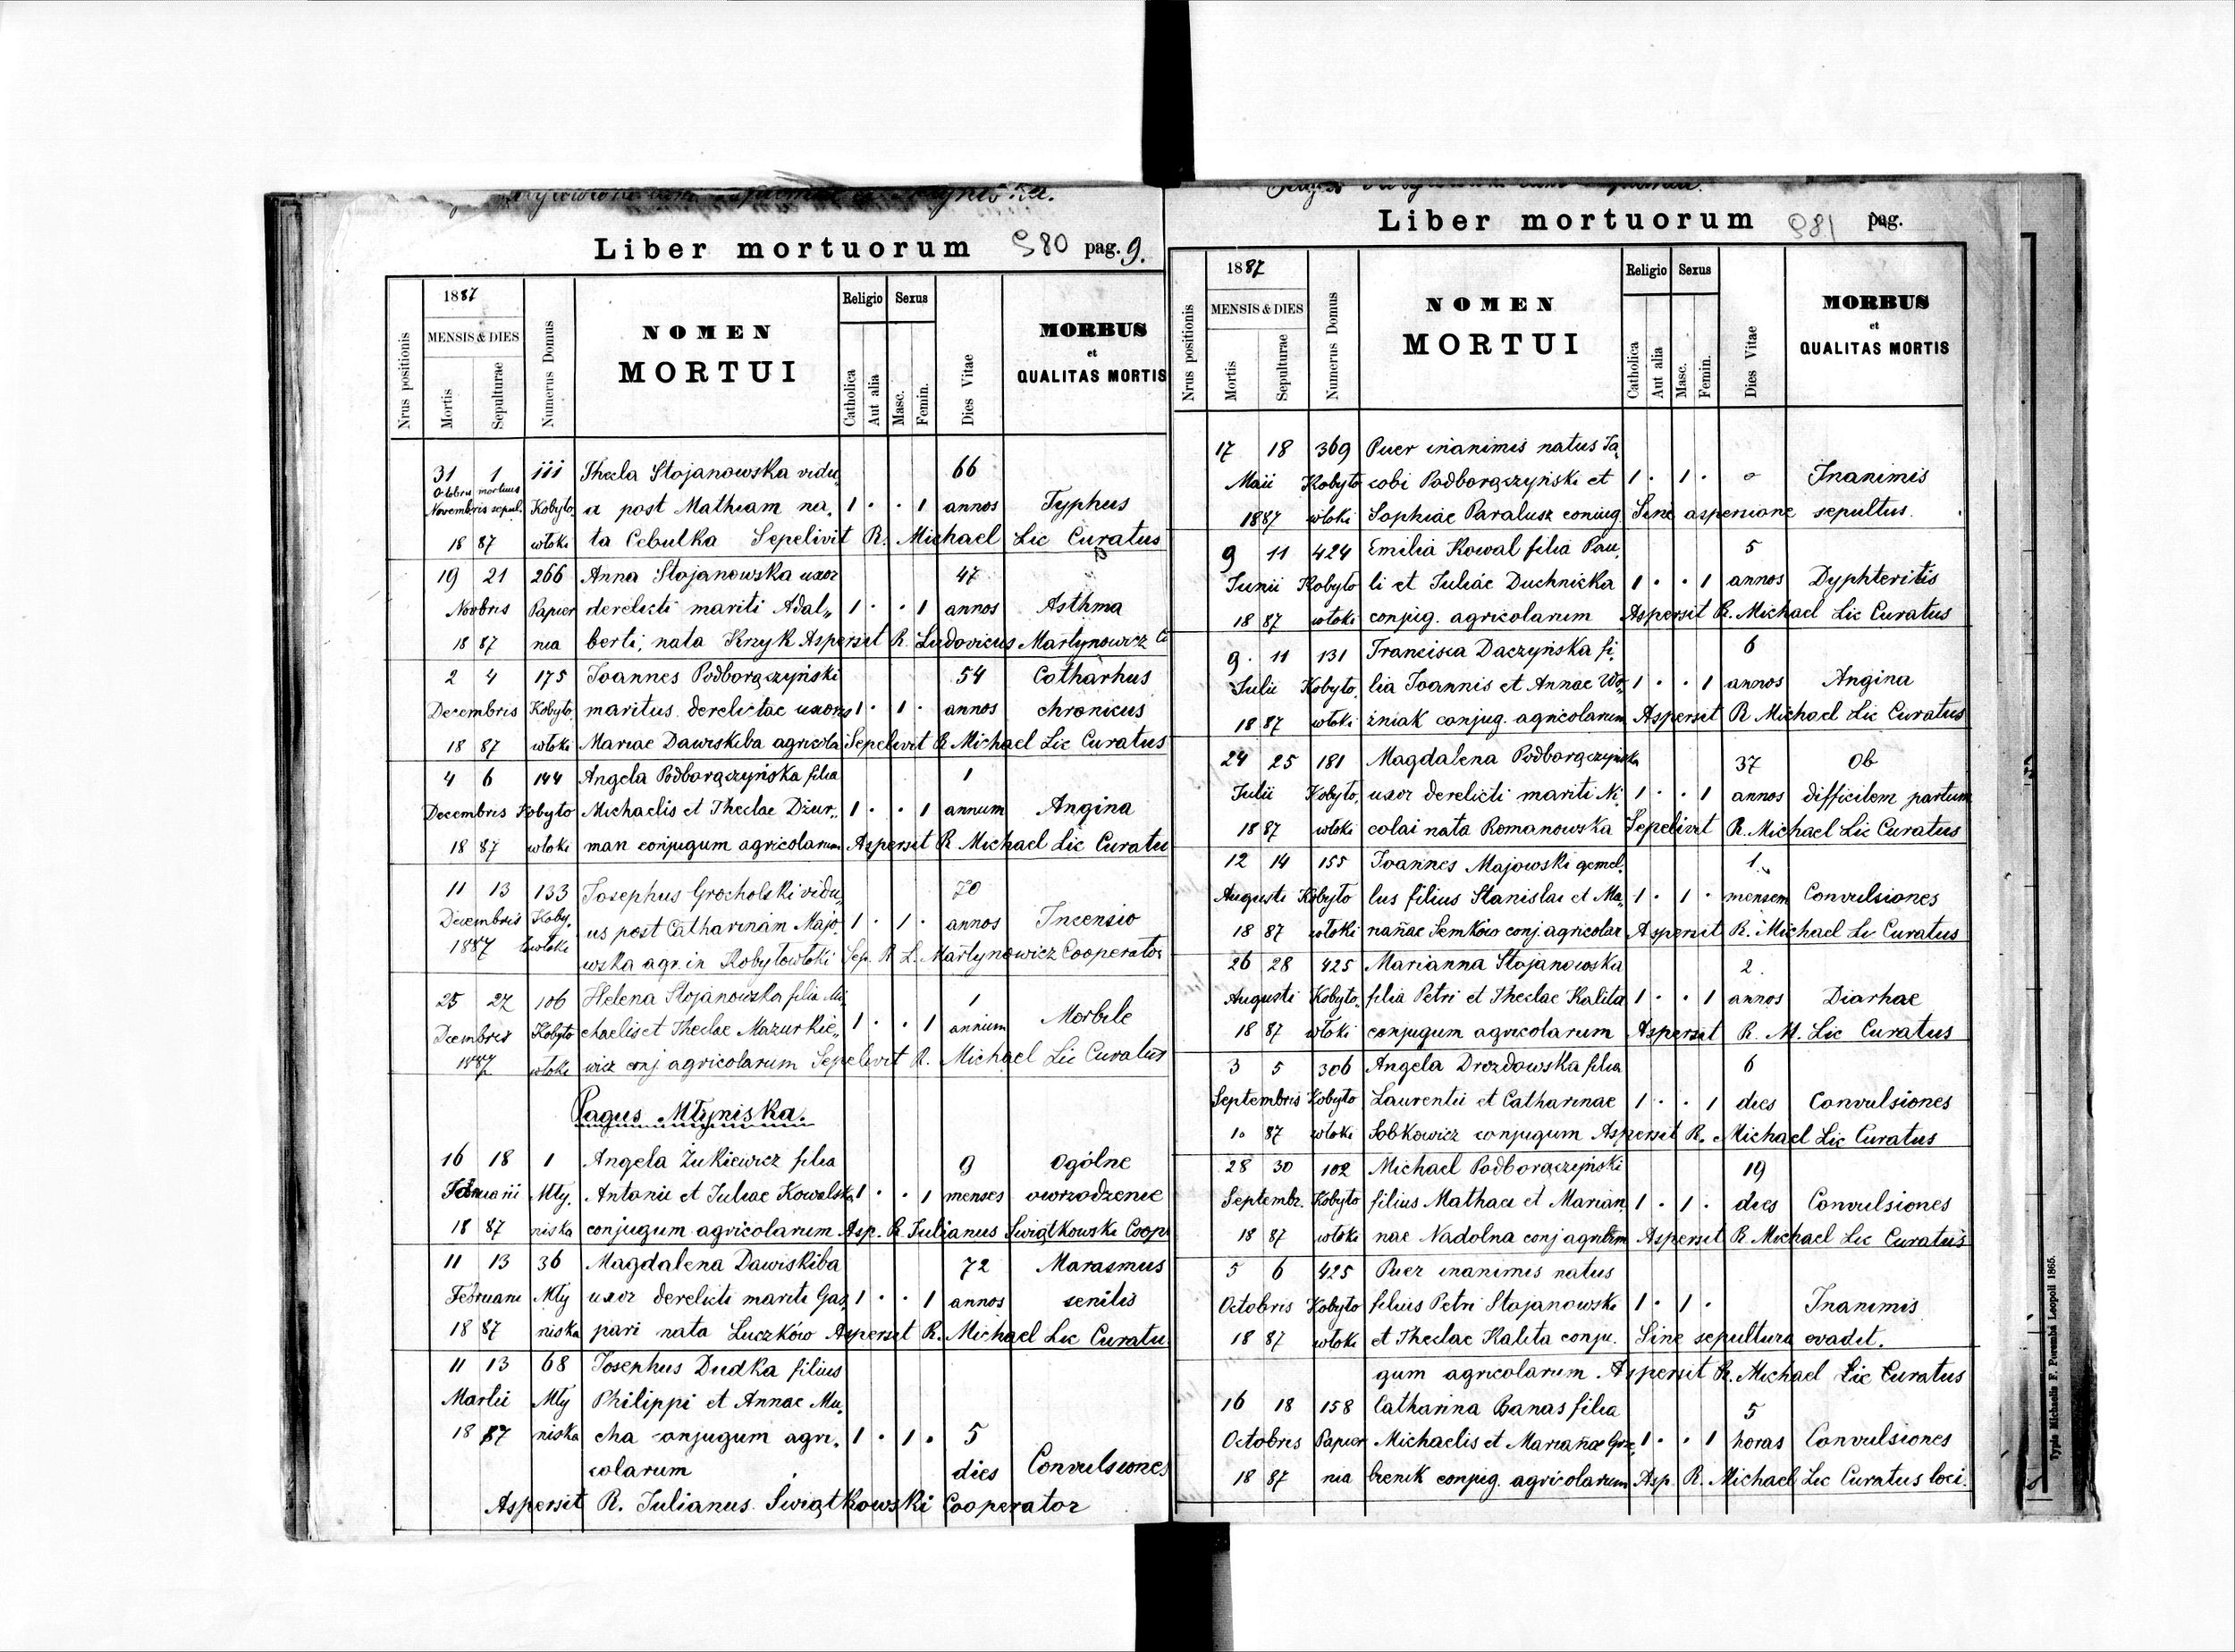 Liber mortuorum 980 pag. 9.
1887
MENSIS & DIES
Nrus positionis
Mortis
Sepulturae
Numerus Domus
NOMEN
MORTUI
Religio
Sexus
Catholica
Aut alia
Masc.
Femin.
Dies Vitae
MORBUS
et
QUALITAS MORTIS
31 1 111 Thecla Stojanowska vidu„ 66
Octobris mortuus
Novembris sepul. Kobyło„ a post Mathiam na„ 1 . . 1 annos Typhus
18 87 włoki ta Cebulka Sepelivit R. Michael Lic Curatus
19 21 266 Anna Stojanowska uxor 47
Novbris Papier derelicti mariti Adal„ 1 . . 1 annos Asthma
18 87 nia berti, nata Krzyk Aspersit R. Ludovicus Martynowicz C
2 4 175 Joannes Podborączyński 54 Catharhus
Decembris Kobyło maritus derelictae uxoris 1 . 1 . annos chronicus
18 87 włoki Mariae Dawiskiba agricola Sepelivit R Michael Lic Curatus
4 6 144 Angela Podborączyńska filia 1
Decembris Kobyło Michaelis et Theclae Dziur„ 1 . . 1 annum Angina
18 87 włoki man conjugum agricolarum Aspersit R Michael Lic Curatu
11 13 133 Josephus Grocholski vidu„ 70
Decembris Koby„ us post Catharinam Majo„ 1 . 1 . annos Incensio
1887 łwłoki wska agr. in Kobyłowłoki Sep. R L. Martynowicz Cooperator
25 27 106 Helena Stojanowska filia Mi„ 1
Decembris Kobyło chaelis et Theclae Mazurkie„ 1 . . 1 annum Morbile
1887 włoki wicz conj agricolarum Sepelivit R. Michael Lic Curatus
Pagus Młyniska.
16 18 1 Angela Żukiewicz filia 9 ogólne
Februarii Mły„ Antonii et Juliae Kowalska 1 . . 1 menses owrzodzenie
18 87 niska conjugum agricolarum Asp. R. Julianus Swiątkowski Coop
11 13 36 Magdalena Dawiskiba 72 Marasmus
Februarii Mły uxor derelicti mariti Gas„ 1 . . 1 annos senilis
18 87 niska pari nata Luczków Aspersit R. Michael Lic Curatu
11 13 68 Josephus Dudka filius
Martii Mły Philippi et Annae Mu„
18 87 niska cha conjugum agri„ 1 . 1 . 5
colarum dies Convulsiones
Aspersit R. Julianus Świątkowski Cooperator
Liber mortuorum 981 pag.
1887
MENSIS & DIES
Nrus positionis
Mortis
Sepulturae
Numerus Domus
NOMEN
MORTUI
Religio
Sexus
Catholica
Aut alia
Masc.
Femin.
Dies Vitae
MORBUS
et
QUALITAS MORTIS
17 18 369 Puer inanimis natus Ja„
Maii Kobyło cobi Podborączyński et 1 . 1 . o Inanimis
1887 włoki Sophiae Paralusz conjug. Sine aspersione sepultus.
9 11 424 Emilia Kowal filia Pau„ 5
Junii Kobyło li et Juliae Duchnicka 1 . . 1 annos Dyphteritis
18 87 włoki conjug. agricolarum Aspersit R. Michael Lic Curatus
9. 11 131 Francisca Daczyńska fi„ 6
Julii Kobyło„ lia Joannis et Annae Wo„ 1 . . 1 annos Angina
1887 włoki źniak conjug. agricolarum Aspersit R Michael Lic Curatus
24 25 181 Magdalena Podborączyńska 37 Ob
Julii Kobyło„ uxor derelicti mariti Ni„ 1 . . 1 annos difficilem partum
1887 włoki colai nata Romanowska Sepelivit R. Michael Lic Curatus
12 14 155 Joannes Majowski gemel„ 1.
Augusti Kobyło lus filius Stanislai et Ma„ 1 . 1 . mensem Convulsiones
18 87 włoki riañae Semków conj. agricolar Aspersit R. Michael Lic Curatus
26 28 425 Marianna Stojanowska 2.
Augusti Kobyło„ filia Petri et Theclae Kalita 1 . . 1 annos Diarhae
18 87 włoki conjugum agricolarum Aspersit R. M. Lic Curatus
3 5 306 Angela Drozdowska filia 6
Septembris Kobyło Laurentii et Catharinae 1 . . 1 dies Convulsiones
18 87 włoki Sobkowicz conjugum Aspersit R. Michael Lic Curatus
28 30 102 Michael Podborączyński 19
Septembr. Kobyło filius Mathaei et Marian„ 1 . 1 . dies Convulsiones
18 87 włoki nae Nadolna conj Aspersit R Michael Lic Curatus
5 6 425 Puer inanimis natus
Octobris Kobyło filius Petri Stojanowski 1 . 1 . Inanimis
18 87 włoki et Theclae Kalita conju„ Sine sepultura evadit.
gum agricolarum Aspersit R. Michael Lic Curatus
16 18 158 Catharina Banas filia 5
Octobris Papier Michaelis et Mariañae Grze„ 1 . . 1 horas Convulsiones
18 87 nia bienik conjug. agricolarum Asp. R. Michael Lic Curatus loci.
Typis Michaelis F. Poremba Leopoli 1865.